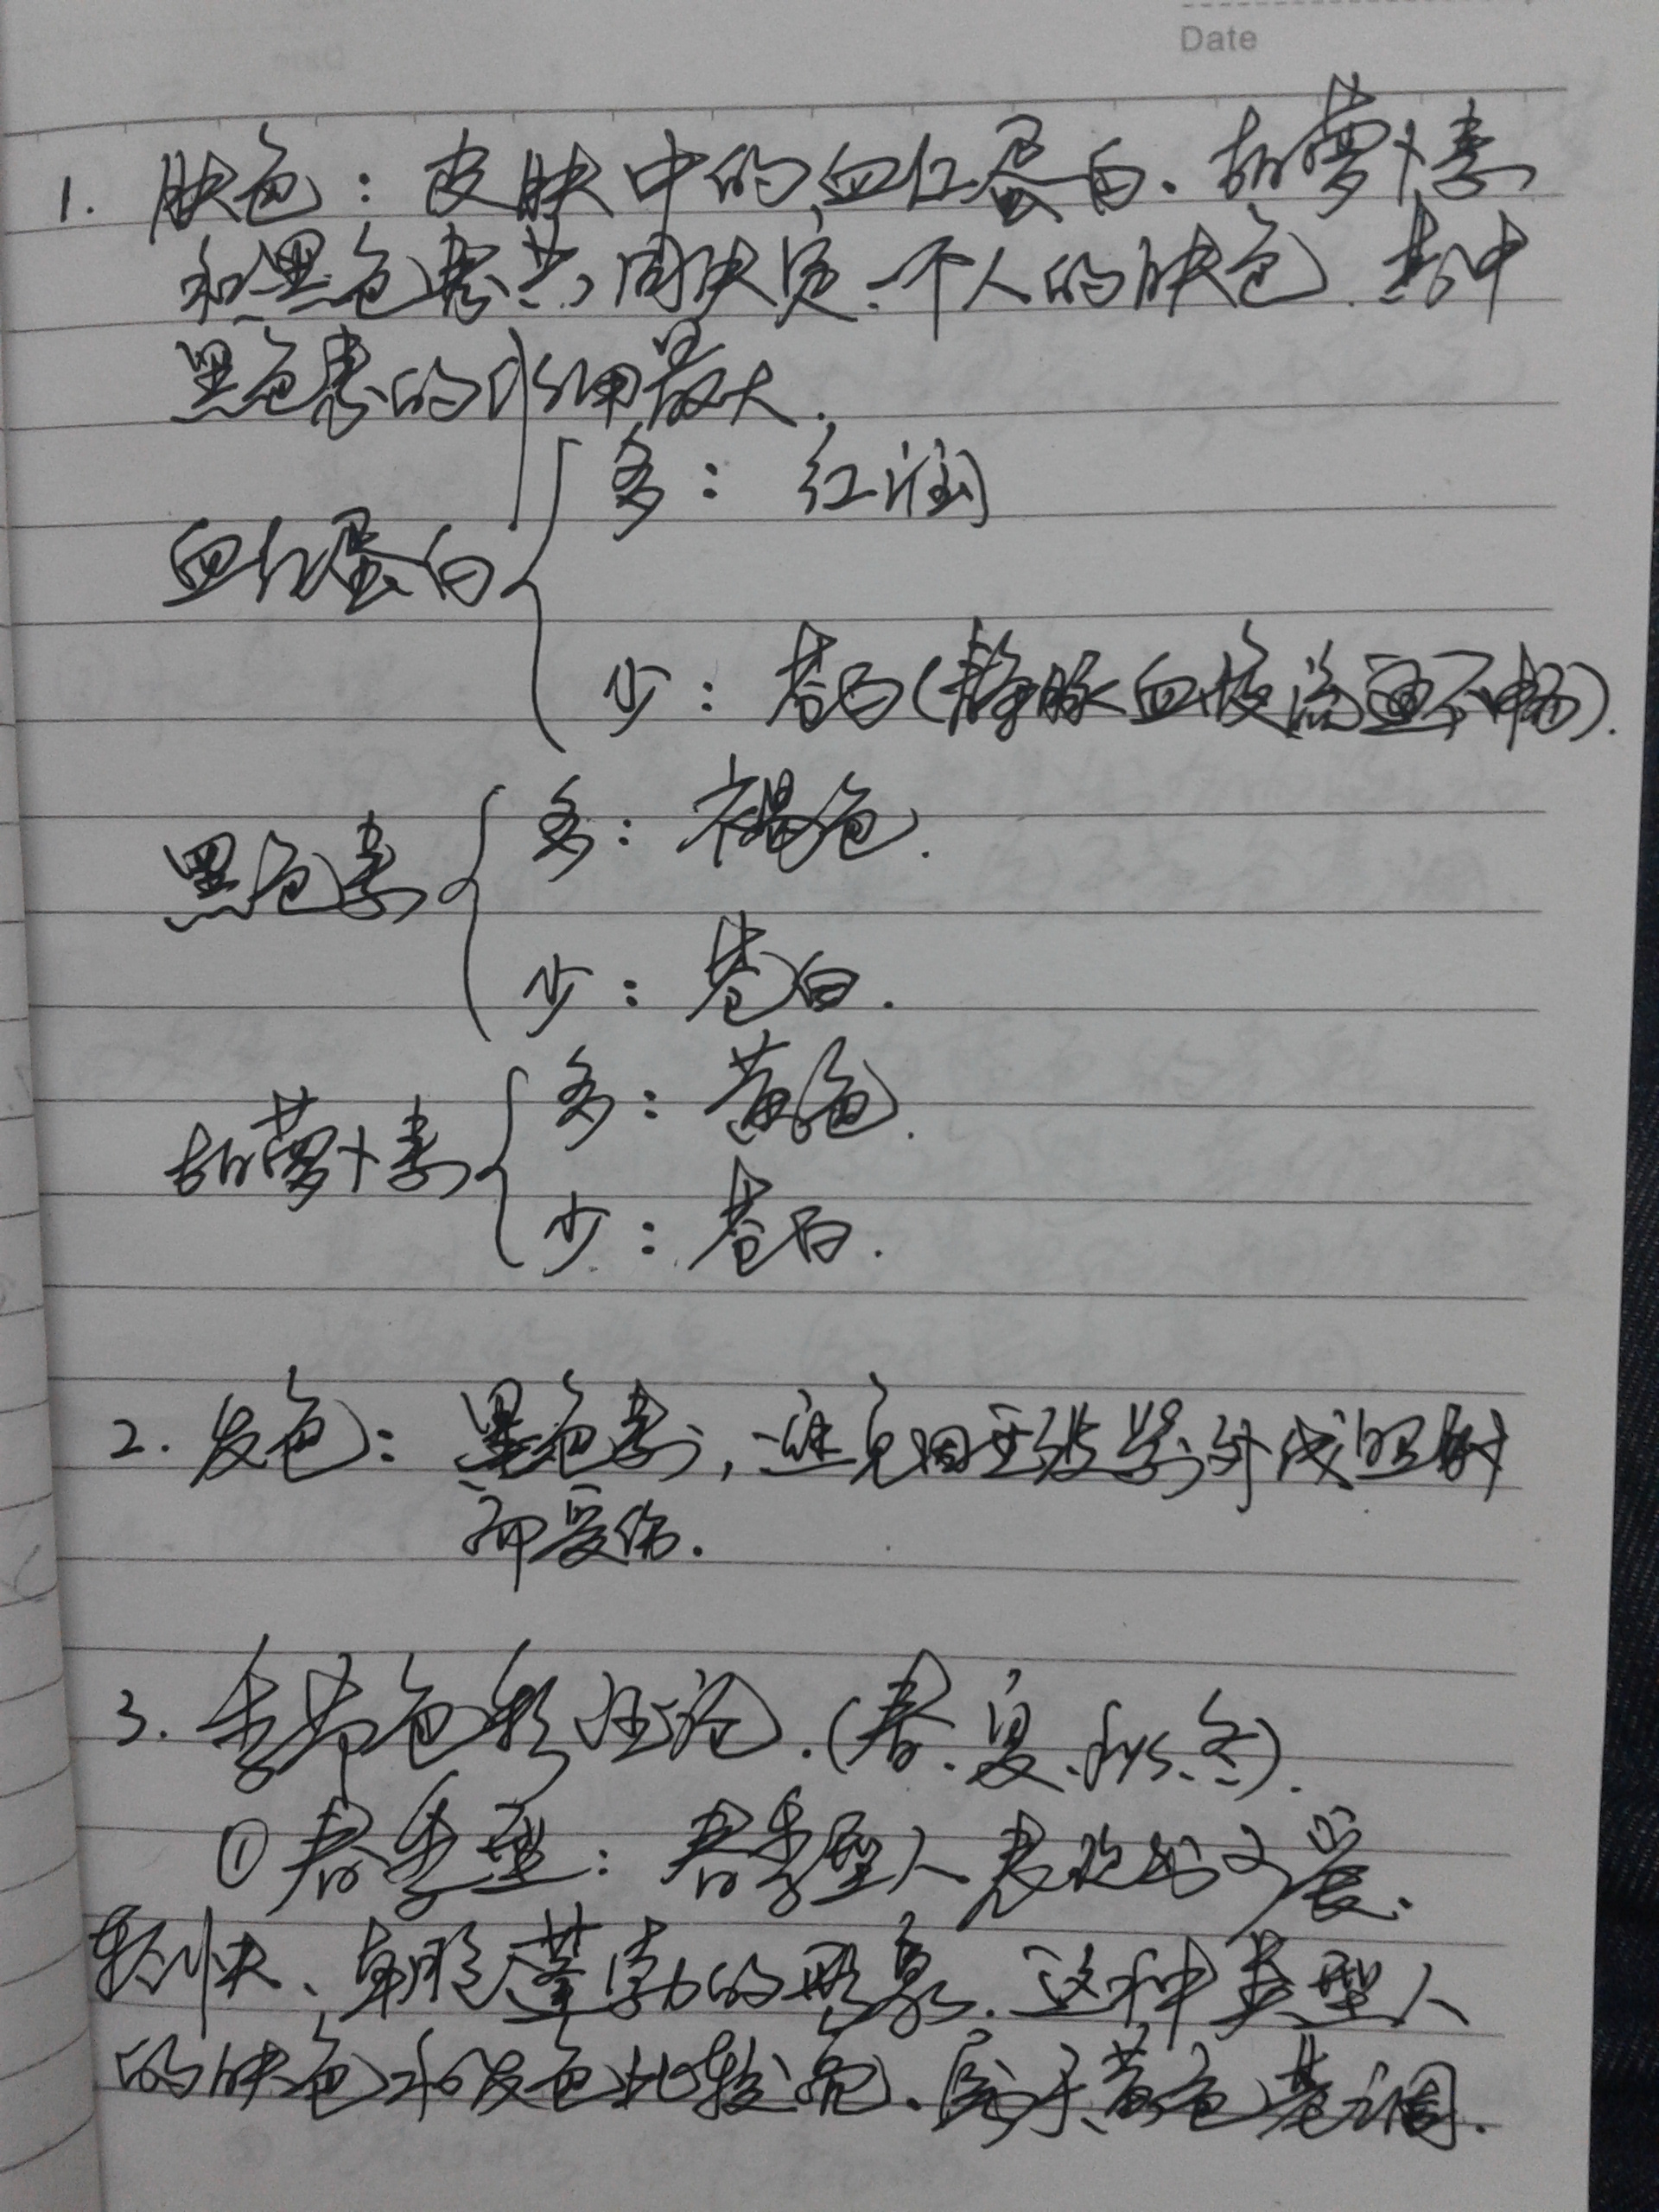 Date
1. 肤色：皮肤中的血红蛋白、胡萝卜素
和黑色素共同决定一个人的肤色. 其中
黑色素的作用最大.
血红蛋白
多：红润
少：苍白(静脉血液流通不畅).
黑色素
多：褐色.
少：苍白.
胡萝卜素
多：黄色.
少：苍白.
2. 发色：黑色素, 避免因至被紫外线照射
而受伤.
3. 季节色彩理论.(春.夏.秋.冬).
① 春季型：春季型人表现的
轻快、朝气蓬勃的形象. 这种类型人
的肤色和发色比较亮. 属于黄色基调.